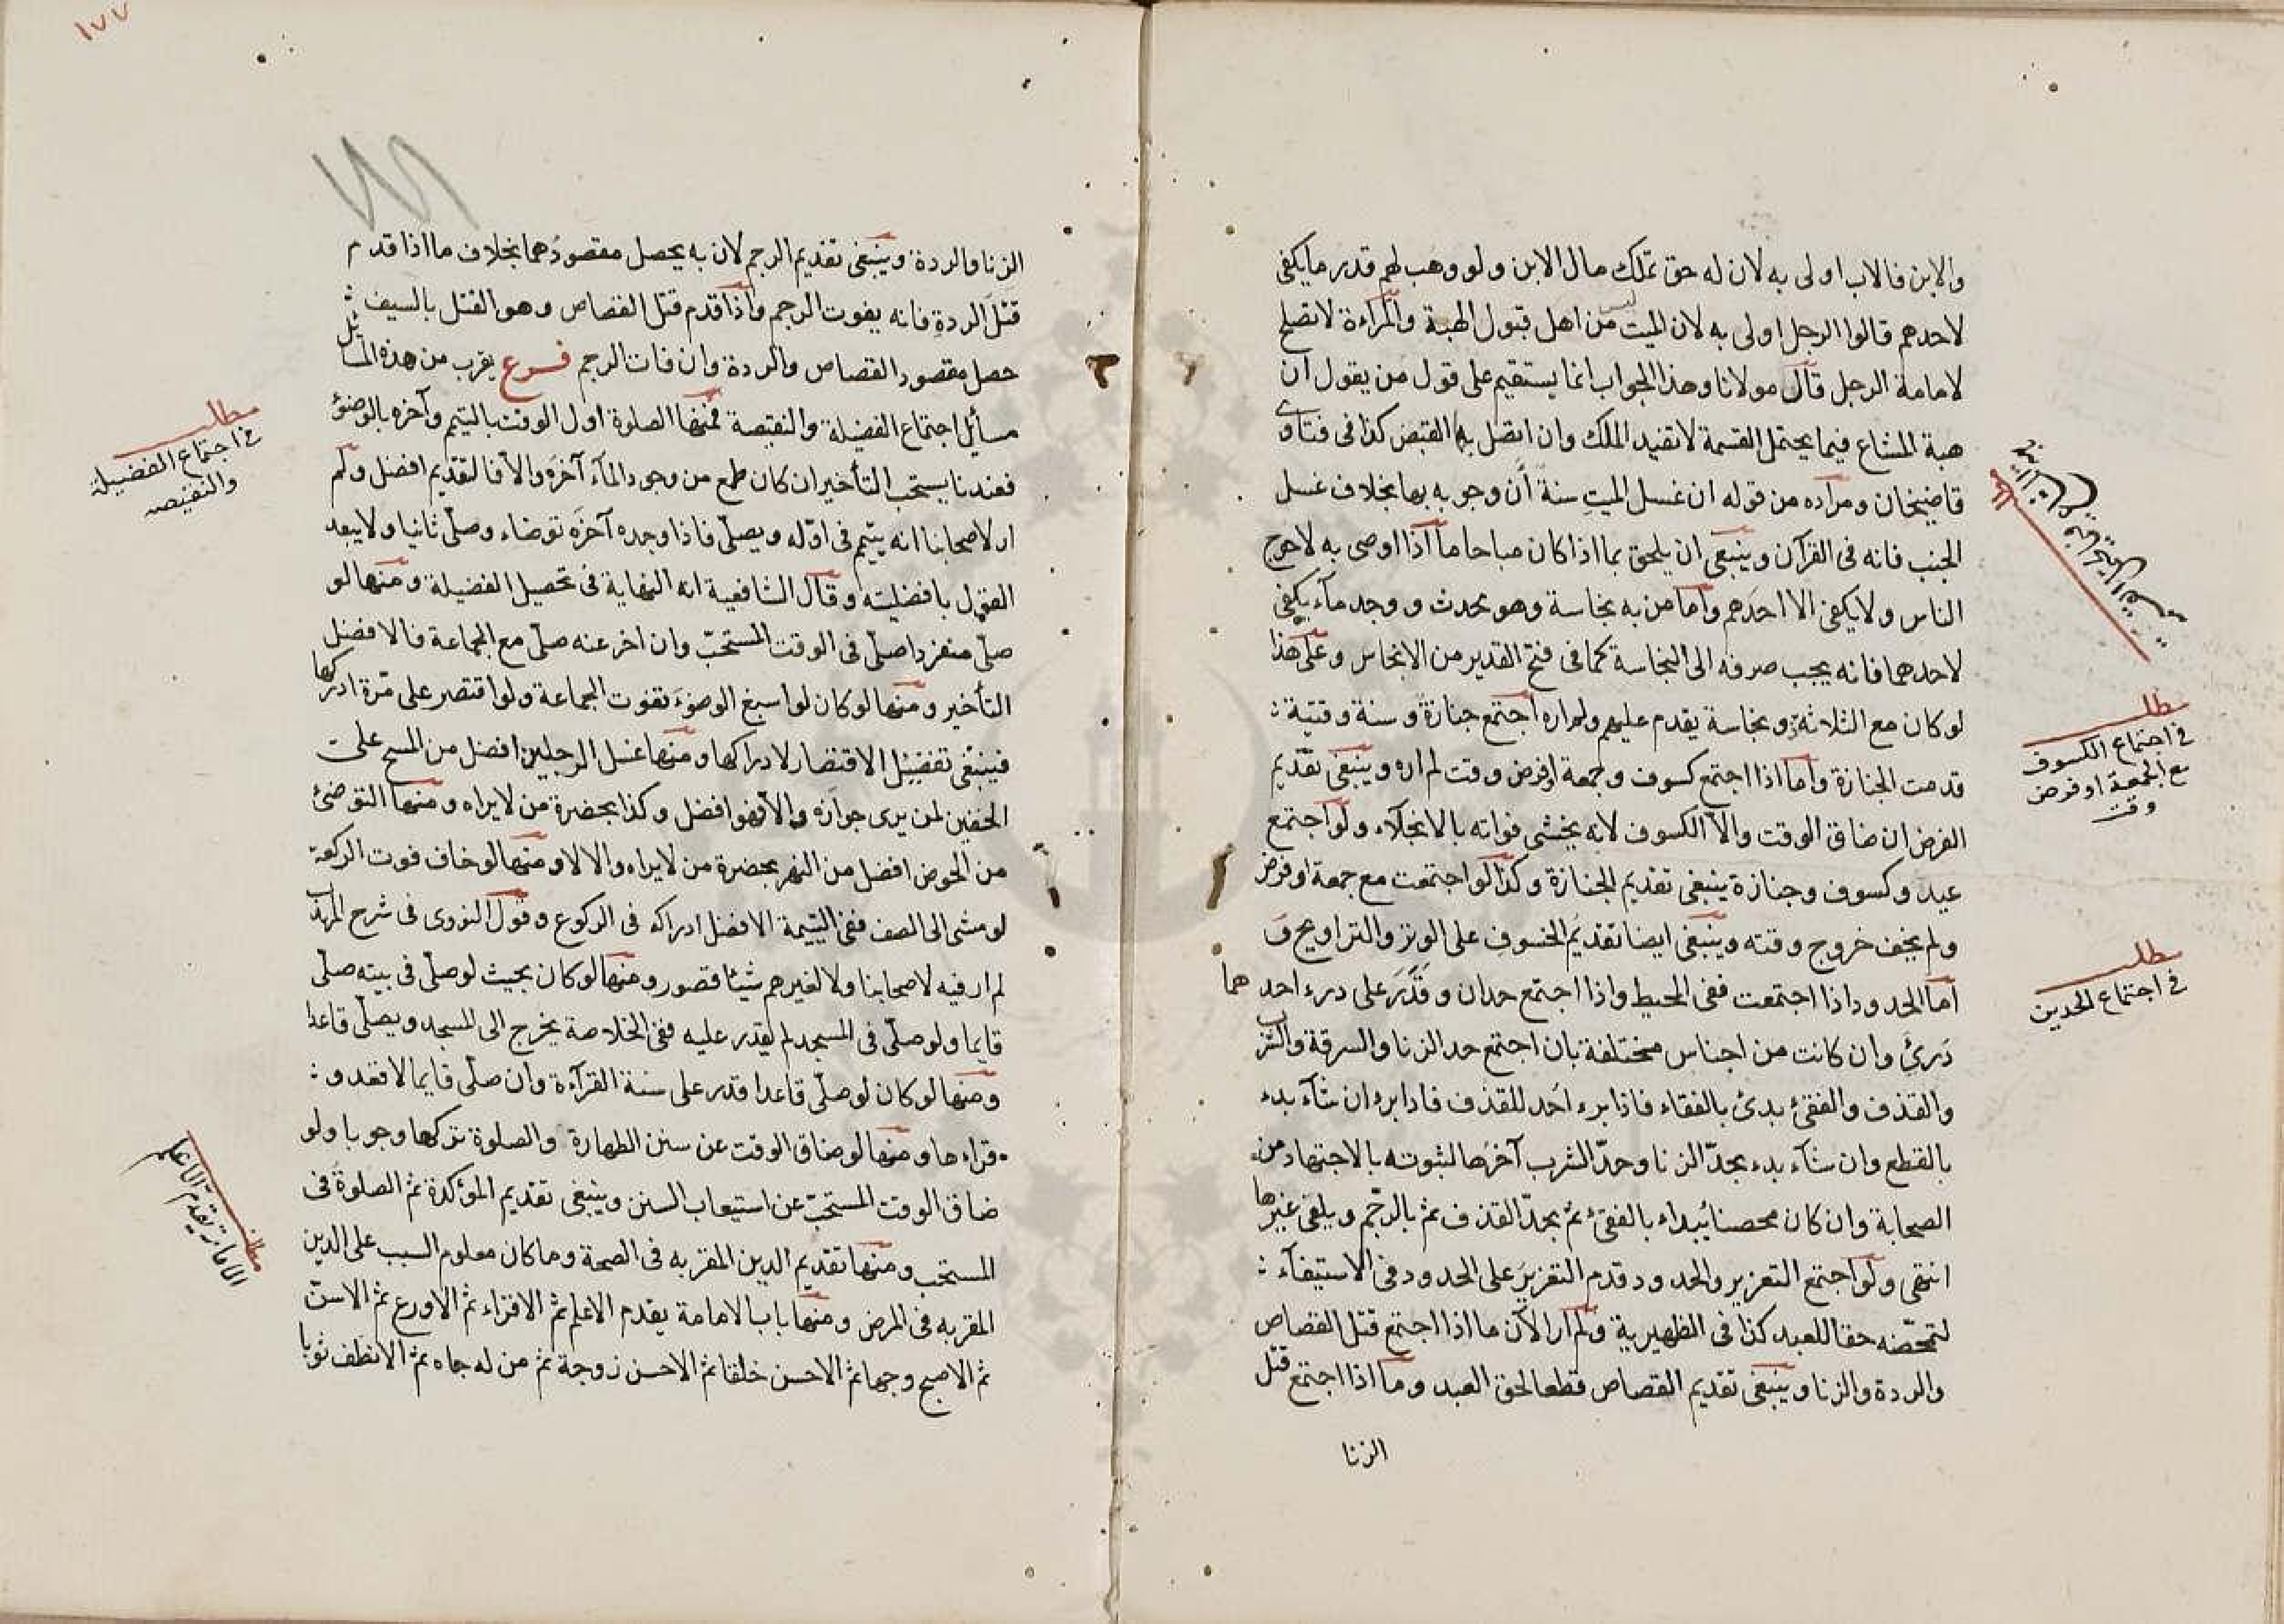 والابن فالاب اولى به لان له حق تملك مال الابن ولو وهب لهم قدر ما يكفى
لاحدهم قالوا الرجل اولى به لان الميت ليس من اهل قبول الهبة والمرأة لا تصلح
لامامة الرجل قال مولانا وهذا الجواب انما يستقيم على قول من يقول ان
هبة المشاع فيما يحتمل القسمة لا تفيد الملك وان اتصل بها القبض كذا فى فتاوى
قاضيخان ومراده من قوله ان غسل الميت سنة أن وجوبه بها بخلاف غسل
الجنب فانه فى القرآن وينبغى ان يلحق بما اذا كان مباحا ما اذا اوصى به لاحوج
الناس ولا يكفى الا احدهم واما من به نجاسة وهو محدث ووجد ماء يكفى
لاحدهما فانه يجب صرفه الى النجاسة كما فى فتح القدير من الانجاس وعلى هذا
لو كان مع الثلاثة ذو نجاسة يقدم عليهم ولم اره اجتمع جنازة وسنة وقتية
قدمت الجنازة واما اذا اجتمع كسوف وجمعة او فرض وقت لم اره وينبغى تقديم
الفرض ان ضاق الوقت والا الكسوف لانه يخشى فواته بالانجلاء ولو اجتمع
عيد وكسوف وجنازة ينبغى تقديم الجنازة وكذا لو اجتمعت مع جمعة او فرض
ولم يخف خروج وقته وينبغى ايضا تقديم الخسوف على الوتر والتراويح و
أما الحدود اذا اجتمعت ففى المحيط واذا اجتمع حدان وقدر على درء احدهما
درئ وان كانت من اجناس مختلفة بان اجتمع حد الزنا والسرقة والشرب
والقذف والفقئ بدئ بالفقاء فاذا برء احد للقذف فاذا برء ان شآء بدء
بالقطع وان شآء بدء بحد الزنا وحد الشرب آخرها لثبوته بالاجتهاد من
الصحابة وان كان محصنا يبداء بالفقئ ثم بحد القذف ثم بالرجم ويلغى غيرها
انتهى ولو اجتمع التعزير والحدود قدم التعزير على الحدود فى الاستيفآء
لتمحضه حقا للعبد كذا فى الظهيرية ولم ار الآن ما اذا اجتمع قتل القصاص
والردة والزنا وينبغى تقديم القصاص قطعا لحق العبد وما اذا اجتمع قتل
الزنا
مطلب
فى اجتماع الكسوف
مع الجمعة او فرض
وقت
مطلب
فى اجتماع الحدين
١٧٧
الزنا والردة وينبغى تقديم الرجم لان به يحصل مقصودهما بخلاف ما اذا قدم
قتل الردة فانه يفوت الرجم واذا قدم قتل القصاص وهو القتل بالسيف
حصل مقصود القصاص والردة وان فات الرجم فرع يقرب من هذه المسائل
مسأئل اجتماع الفضيلة والنقيصة فمنها الصلوة اول الوقت بالتيمم وآخره بالوضوء
فعندنا يستحب التأخير ان كان طمع من وجود المآء آخره والا فالتقديم افضل ولم
ار لاصحابنا انه يتيمم فى اوله ويصلى فاذا وجده آخره توضاء وصلى ثانيا ولا يبعد
القول بافضليته وقال الشافعية انه النهاية فى تحصيل الفضيلة ومنها لو
صلى منفردا صلى فى الوقت المستحب وان اخر عنه صلى مع الجماعة فالافضل
التأخير ومنها لو كان لو اسبغ الوضوء تفوت الجماعة ولو اقتصر على مرة ادركها
فينبغى تفضيل الاقتصار لادراكها ومنها غسل الرجلين افضل من المسح على
الخفين لمن يرى جوازه والا فهو افضل وكذا بحضرة من لا يراه ومنها التوضئ
من الحوض افضل من النهر بحضرة من لا يراه والا لا ومنها لو خاف فوت الركعة
لو مشى الى الصف ففى اليتيمة الافضل ادراكه فى الركوع وقول النووى فى شرح المهذب
لم ار فيه لاصحابنا ولا لغيرهم شيئا قصور ومنها لو كان بحيث لو صلى فى بيته صلى
قايما ولو صلى فى المسجد لم يقدر عليه ففى الخلاصة يخرج الى المسجد ويصلى قاعدا
ومنها لو كان لو صلى قاعدا قدر على سنة القرآءة وان صلى قايما لا فقعد و
قراءها ومنها لو ضاق الوقت عن سنن الطهارة والصلوة تركها وجوبا ولو
ضاق الوقت المستحب عن استيعاب السنن وينبغى تقديم المؤكدة ثم الصلوة فى
المستحب ومنها تقديم الدين المقر به فى الصحة وما كان معلوم السبب على الدين
المقر به فى المرض ومنها باب الامامة يقدم الاعلم ثم الاقراء ثم الاورع ثم الاسن
ثم الاصبح وجها ثم الاحسن خلقا ثم الاحسن زوجة ثم من له جاه ثم الانظف ثوبا
مطلب
فى اجتماع الفضيلة
والنقيصه
مطلب